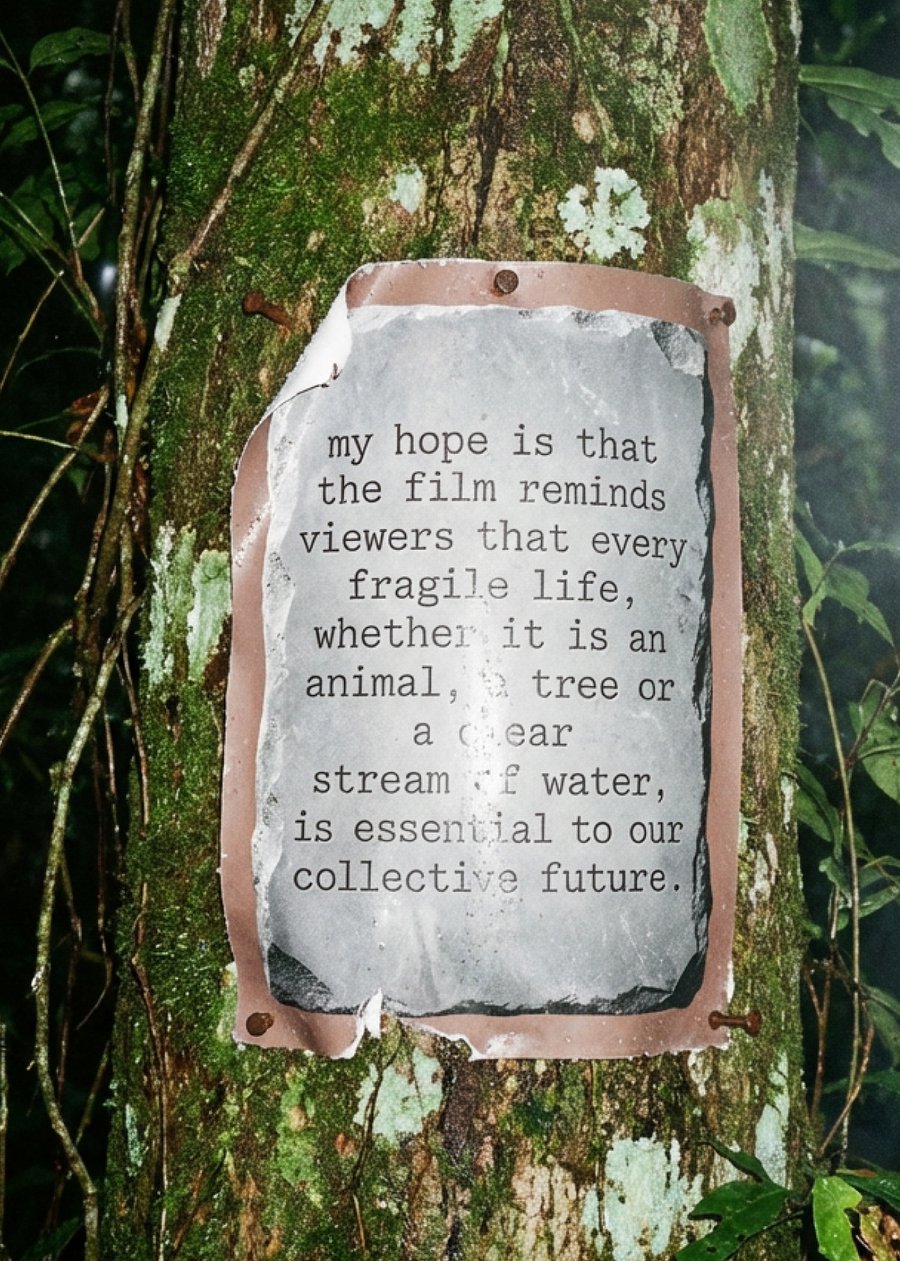 my hope is that
the film reminds
viewers that every
fragile life,
whether it is an
animal, a tree or
a clear
stream of water,
is essential to our
collective future.